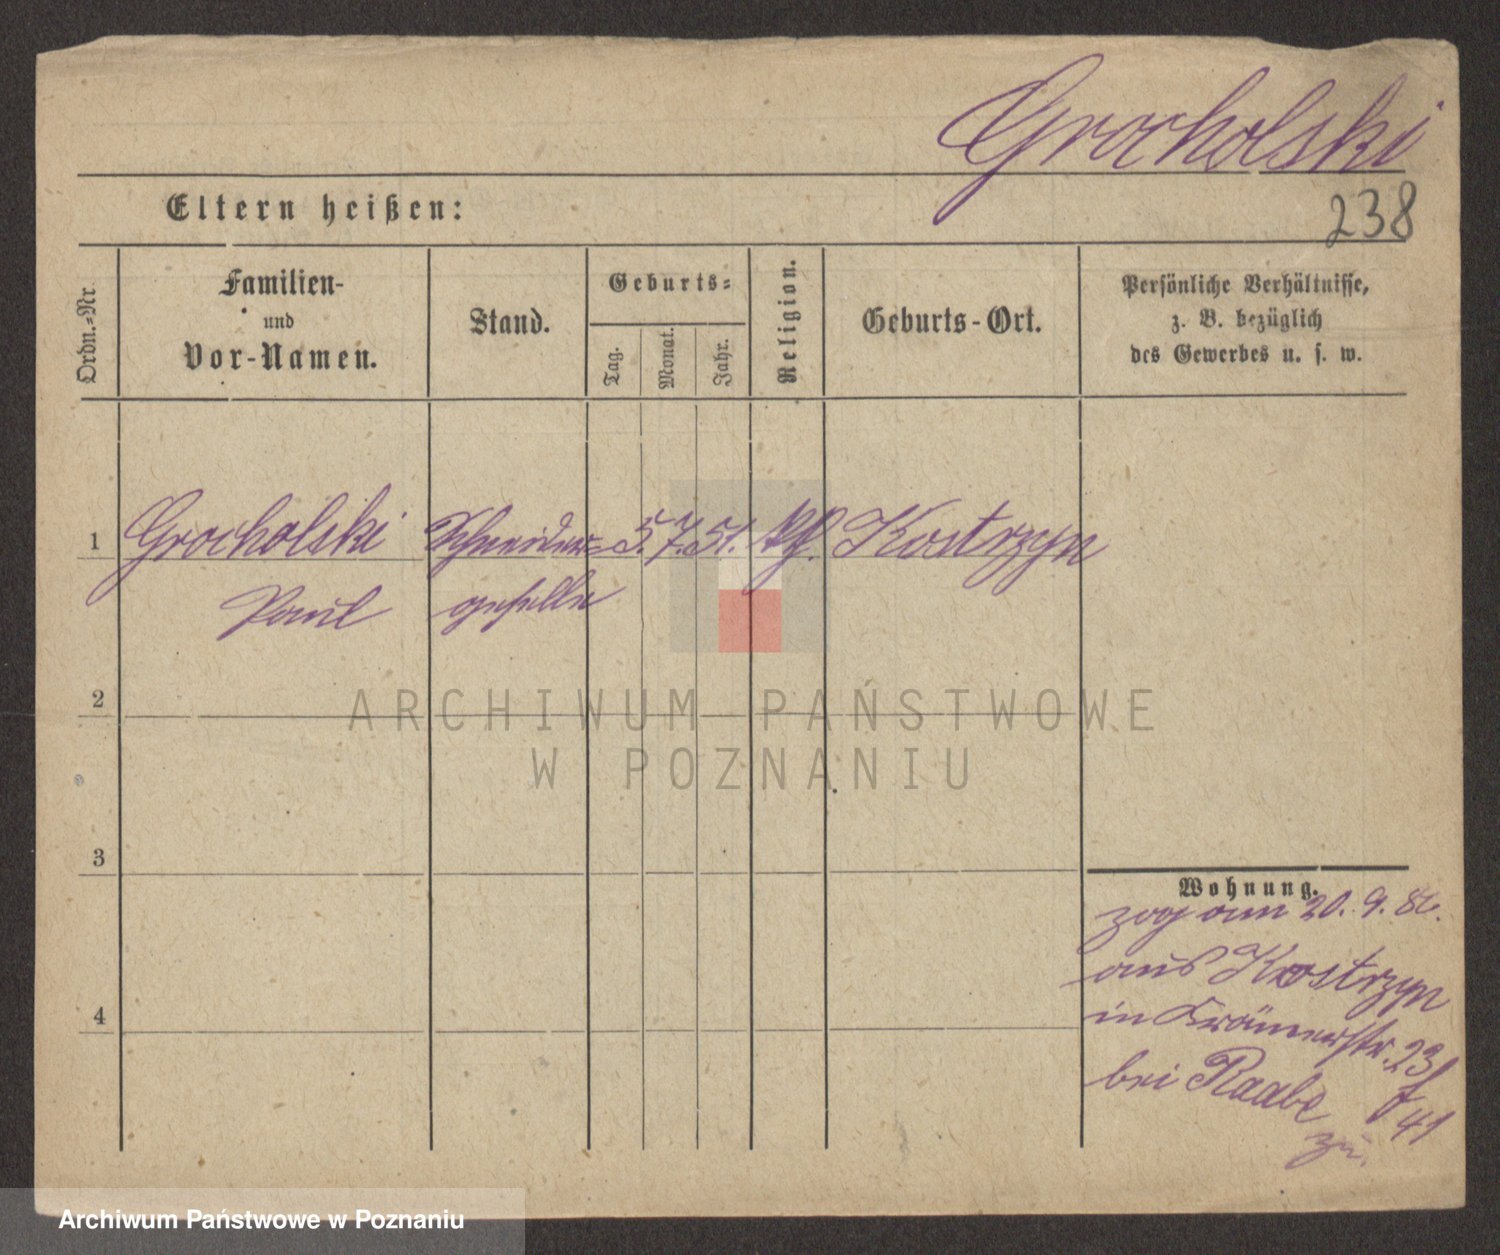 Grocholski
238
Eltern heißen:
Ordn.-Nr.
Familien-
und
Vor-Namen.
Stand.
Geburts-
Tag.
Monat.
Jahr.
Religion.
Geburts-Ort.
Persönliche Verhältnisse,
z. B. bezüglich
des Gewerbes u. s. w.
1 Grocholski Schneider- 5. 7. 51. Kostrzyn
Paul geselle
2
3
4
Wohnung.
zog am 20. 9. 86.
aus Kostrzyn
in Krämerstr. 23
bei Raabe
41
zu.
ARCHIWUM PAŃSTWOWE
W POZNANIU
Archiwum Państwowe w Poznaniu